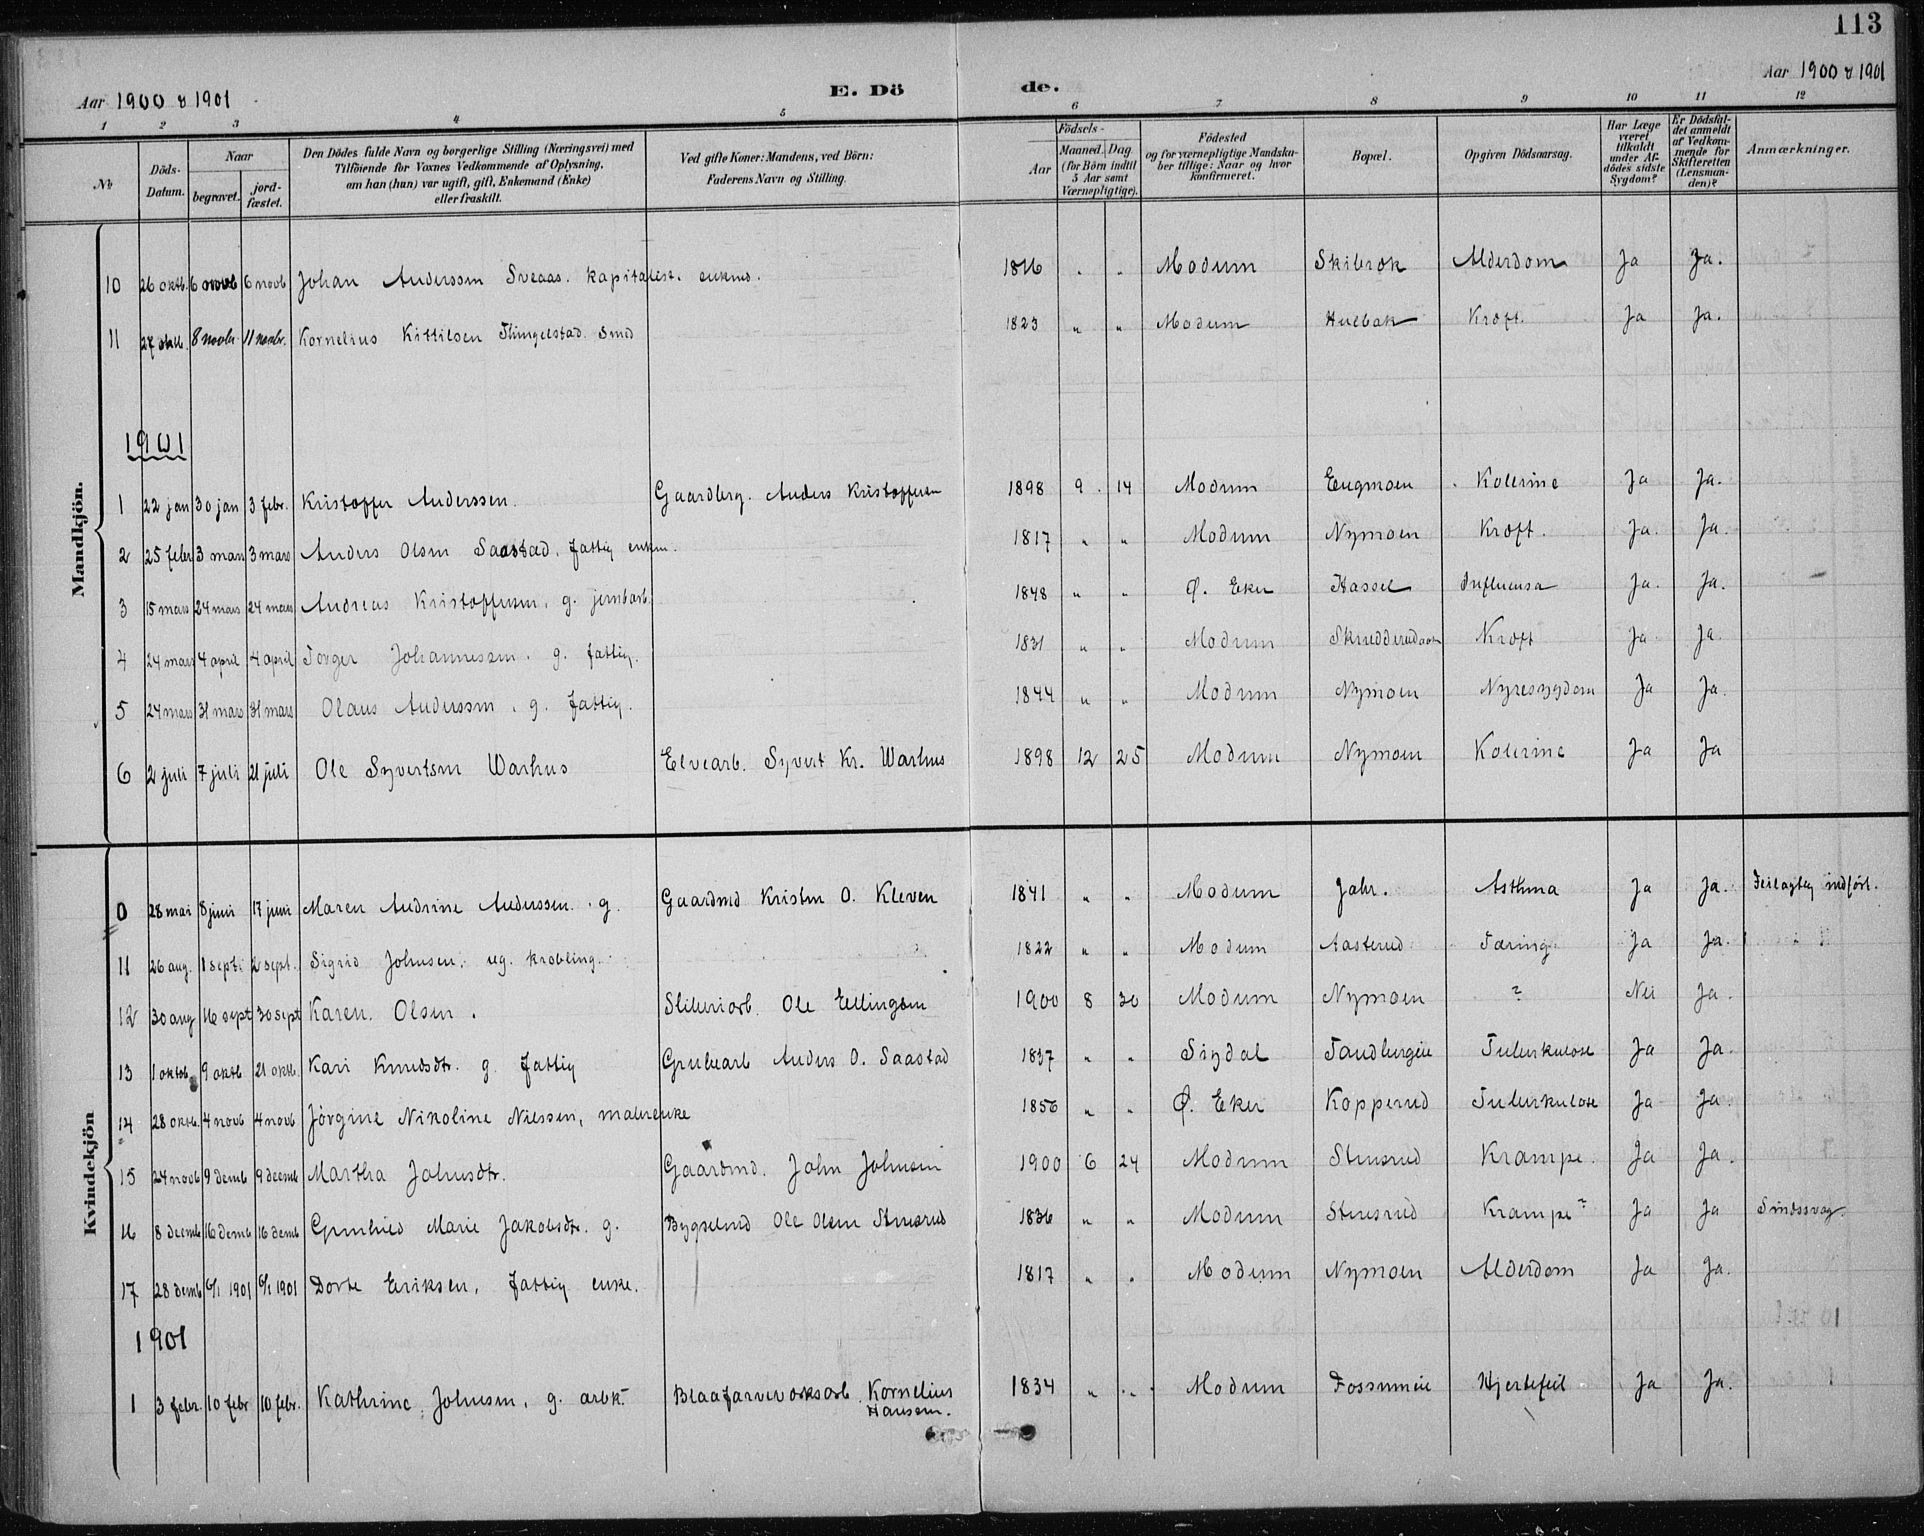 113
Aar 1900 & 1901
E. Dö
de.
Aar 1900 & 1901
1 2 3 4 5 6 7 8 9 10 11 12
№ Döds-Datum. Naar begravet. jord-fæstet. Den Dödes fulde Navn og borgerlige Stilling (Næringsvei) med Tilföiende for Voxnes Vedkommende af Oplysning, om han (hun) var ugift, gift, Enkemand (Enke) eller fraskilt. Ved gifte Koner: Mandens, ved Börn: Faderens Navn og Stilling. Födsels- Aar Maaned. Dag (for Börn indtil 5 Aar samt Værnepligtige). Födested og for værnepligtige Mandskaber tillige: Naar og hvor konfirmeret. Bopæl. Opgiven Dödsaarsag. Har Læge været tilkaldt under Afdödes sidste Sygdom? Er Dödsfaldet anmeldt af Vedkommende for Skifteretten (Lensmanden)? Anmærkninger.
Mandkjön.
10 26 oktb. 6 novb 6 novb Johan Anderssen Sveaas. kapitalist. enkmd. 1816 " " Modum Skibrek Alderdom Ja Ja.
11 27 oktb. 8 novbr 11 novbr. Kornelius Kittilsen Thingelstad. Smed 1823 " " Modum Hulbak Kræft. Ja Ja.
1901
1 22 jan 30 jan 3 febr. Kristoffer Anderssen. Gaardbrg. Anders Kristoffersen 1898 9 14 Modum Eugmoen Kolerine Ja Ja.
2 25 febr 3 mars 3 mars Anders Olsen Saastad, fattig enkm. 1817 " " Modum Nymoen Kræft. Ja. Ja.
3 15 mars 24 mars 24 mars Andreas Kristoffersen, g. jernbarb. 1848 " " Ø. Eker Hassel Influensa Ja. Ja.
4 24 mars 4 april 4 april Torger Johannessen. g. fattig. 1831 " " Modum Kræft Ja. Ja.
5 24 mars 31 mars 31 mars Olaus Anderssen, g. fattig. 1844 " " Modum Nymoen Nyresygdom Ja Ja.
6 2 juli 7 juli 21 juli Ole Syvertsen Warhus Elvearb. Syvert Kr. Warhus 1898 12 25 Modum Nymoen Kolerine Ja Ja
Kvindekjön
0 28 mai 8 juni 17 juni Maren Andrine Anderssen. g. Gaardmd Kristen O. Kleven 1841 " " Modum Jahr. Asthma Ja Ja. Feilagtig indført.
11 26 aug. 1 septr 2 sept. Sigrid Johnsen, ug. krøbling. 1822 " " Modum Aasterud Tæring Ja Ja.
12 30 aug 16 sept 30 sept Karen Olsen. Sliberiarb. Ole Ellingsen 1900 8 30 Modum Nymoen ? Nei Ja.
13 1 oktb. 9 oktb 21 oktb. Kari Knudsdtr. g. fattig Grubearb Anders O. Saastad 1837 " " Sigdal Tandbergeie Tuberkulose Ja Ja.
14 28 oktb. 4 novb 4 novb Jörgine Nikoline Nilssen, malerenke 1856 " " Ø. Eker Kopperud Tuberkulose Ja Ja.
15 24 novb 9 demb 9 decmb Martha Johnsdtr. Gaardmd. John Johnsen 1900 6 24 Modum Stensrud Krampe. Ja Ja.
16 8 decmb 16 demb 16 demb Gunhild Marie Jakobsdtr. g. Bygselmd Ole Olsen Stensrud 1836 " " Modum Stensrud Krampe? Ja Ja Sindssvag.
17 28 demb 6/1 1901 6/1 1901 Dorte Eriksen, fattig enke. 1817 " " Modum Nymoen Alderdom Ja Ja.
1901
1 3 febr. 10 febr 10 febr. Kathrine Johnsen, g. arbk. Blaafarveværksarb. Kornelius Hansen. 1834 " " Modum Fossumeie Hjertefeil Ja Ja.